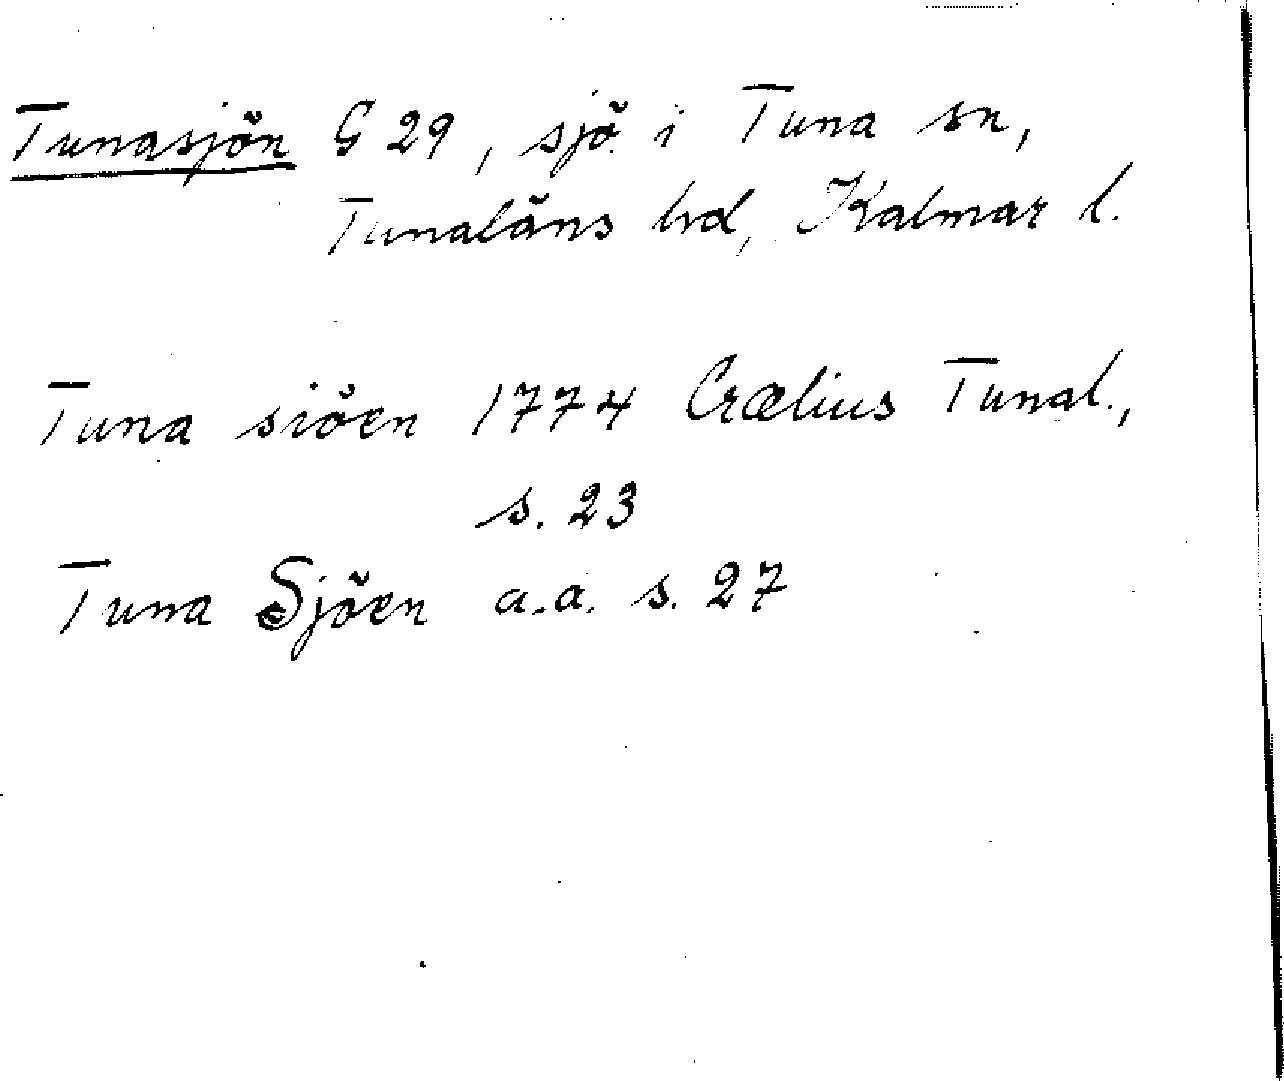 Tunasjön G 29, sjö i Tuna sn,
Tunaläns hd, Kalmar l.
Tuna siöen 1774 Crælius Tunal.,
s. 23
Tuna Sjöen a.a. s. 27